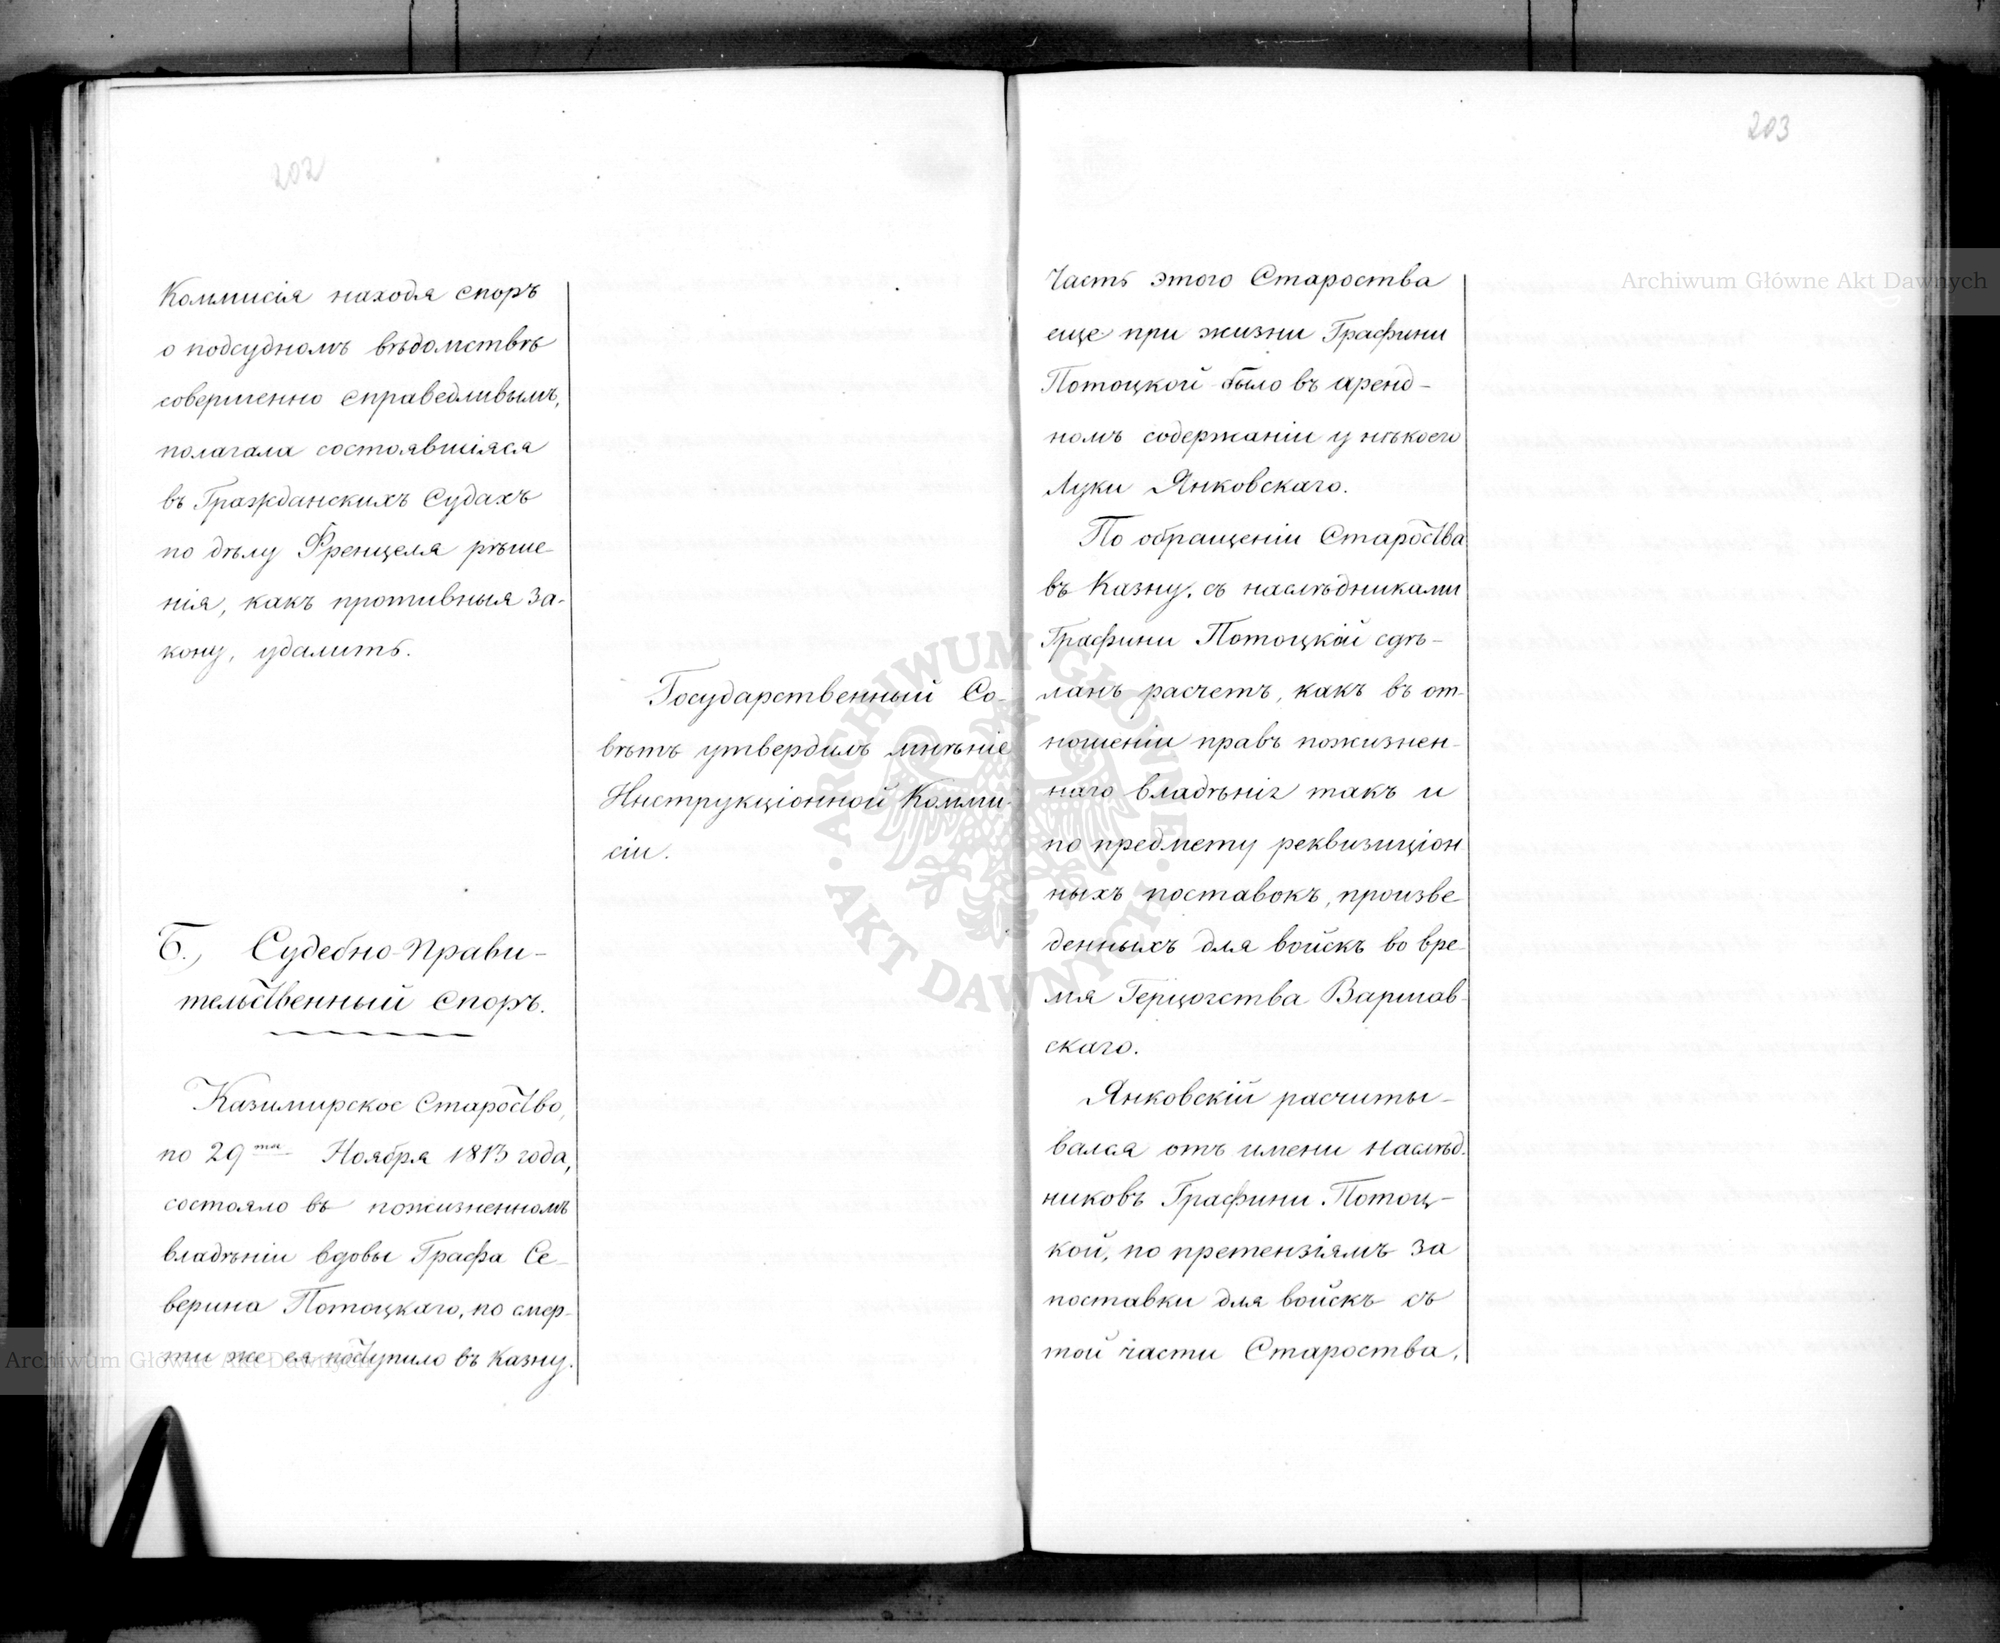 202
Коммисія находя споръ
о подсудномъ вѣдомствѣ
совершенно справедливымъ,
полагала состоявшіяся
въ Гражданскихъ Судахъ
по дѣлу Френцеля рѣше-
нія, какъ противныя за-
кону, удалить.
Государственный Со-
вѣтъ утвердилъ мнѣніе
Инструкціонной Комми-
сіи.
Б., Судебно-Прави-
тельственный споръ.
Казимирское Староство,
по 29тое Ноября 1813 года,
состояло въ пожизненномъ
владѣніи вдовы Графа Се-
верина Потоцкаго, по смер-
ти же ея поступило въ Казну.
203
Часть этого Староства
еще при жизни Графини
Потоцкой было въ аренд-
номъ содержаніи у нѣкоего
Луки Янковскаго.
По обращеніи Староства
въ Казну, съ наслѣдниками
Графини Потоцкой сдѣ-
ланъ расчетъ, какъ въ от-
ношеніи правъ пожизнен-
наго владѣнія такъ и
по предмету реквизиціон
ныхъ поставокъ, произве
денныхъ для войскъ во вре-
мя Герцогства Варшав-
скаго.
Янковскій расчиты-
вался отъ имени наслѣд-
никовъ Графини Потоц-
кой, по претензіямъ за
поставки для войскъ съ
той части Староства,
Archiwum Główne Akt Dawnych
Archiwum Główne Akt Dawnych
ARCHIWUM GŁÓWNE · AKT DAWNYCH ·